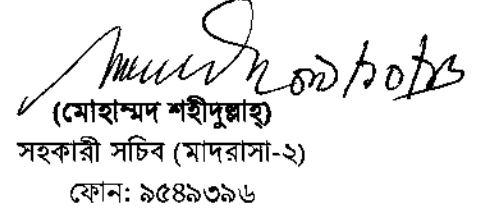 (মোহাম্মদ শহীদুল্লাহ্)
সহকারী সচিব (মাদরাসা-২)
ফোন: ৯৫৪৯৩৯৬